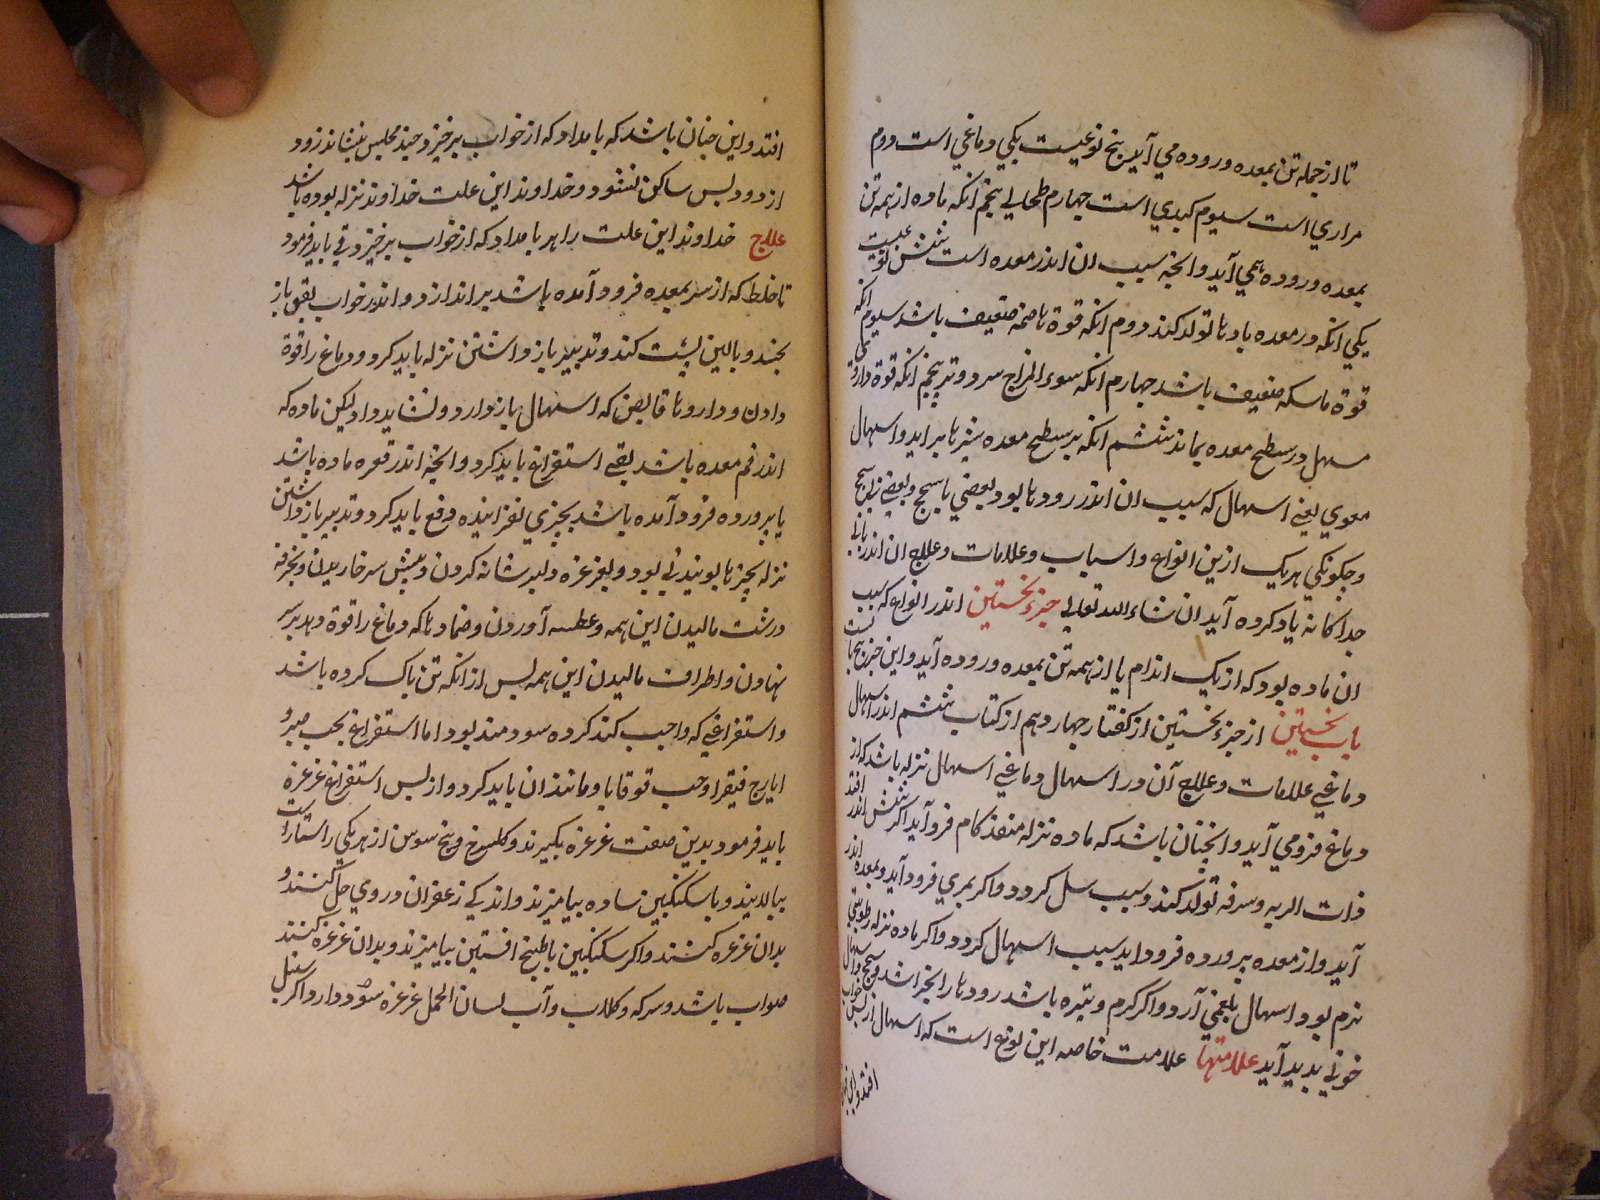 تا از جمله تن بمعده و روده می آید پنج نوعیست یکی دماغی است دوم
مراری است سیوم کبدی است چهارم طحالی پنجم انکه ماده از همه تن
بمعده و روده همی آید و انچه سبب ان اندر معده است شش نوعیست
یکی انکه در معده بادها تولد کند دوم انکه قوة هاضمه ضعیف باشد سیوم انکه
قوة ماسکه ضعیف باشد چهارم انکه سوء المزاج سرد و تر پنجم انکه قوة داروی
مسهل در سطح معده بماند ششم انکه بر سطح معده بثرها براید و اسهال
معوی یعنی اسهال که سبب ان اندر رودها بود بعضی با سحج و بعضی بی سحج
و چکونکی هر یک ازین انواع و اسباب و علامات و علاج ان اندر بابی
جداکانه یاد کرده آید ان شاء الله تعالی جزء نخستین اندر انواع که سبب
ان ماده بود که از یک اندام یا از همه تن بمعده و روده آید و این جزء پنج بابست
باب نخستین از جزء نخستین از کفتار چهاردهم از کتاب ششم اندر اسهال
دماغی علامات و علاج آن در اسهال دماغی اسهال نزله باشد که از
دماغ فرو می آید و انچنان باشد که ماده نزله منفذ کام فرو آید اکر شش اندر افتد
ذات الریه و سرفه تولد کند و سبب سل کردد و اکر بمری فرود آید و بمعده اندر
آید و از معده بروده فرود اید سبب اسهال کردد و اکر ماده نزله رطوبتی
نرم بود اسهال بلغمی آرد و اکر کرم و تیره باشد رودها را بخراشد و سحج و اسهال
خونی پدید آید علامتها علامت خاصه این نوع است که اسهال از پس خواب
افتد و این چنان
افتد و این چنان باشد که بامداد که از خواب برخیزد چند مجلس بنشاند زود
از زود پس ساکن شود و خداوند این علت خداوند نزله بوده باشد
علاج خداوند این علت را هر بامداد که از خواب برخیزد قی باید فرمود
تا خلط که از سر بمعده فرود آمده باشد بر اندازد و اندر خواب بقفا باز
نخسبد و بالین پست کند و تدبیر باز داشتن نزله باید کرد و دماغ را قوة
دادن و داروها قابض که اسهال باز دارد و نشاید داد لیکن ماده که
اندر فم معده باشد بقی استفراغ باید کرد و انچه اندر قعر معده باشد
یا بروده فرود آمده باشد بچیزی لغزاننده دفع باید کرد و تدبیر باز داشتن
نزله بچیزها بوئیدنی بود و بغرغره و بر شانه کردن و پیش سر خاریدن و بخرقه
درشت مالیدن این همه و عطسه آوردن و ضمادها که دماغ را قوة دهد بر سر
نهادن و اطراف مالیدن این همه پس از انکه تن پاک کرده باشد
و استفراغی که واجب کند کرده سودمند بود اما استفراغ بحب صبر و
ایارج فیقرا و حب قوقایا و مانند ان باید کرد و از پس استفراغ غرغره
باید فرمود بدین صفت غرغره بکیرند و کلسرخ و بیخ سوس از هر یکی راستاراست
ببالایند و با سکنکبین ساده بیامیزند و اندکی زعفران در وی حل کنند و
بدان غرغره کنند و اکر سکنکبین با طبیخ افسنتین بیامیزند و بدان غرغره کنند
صواب باشد و سرکه و کلاب و آب لسان الحمل غرغره سود دارد و اکر سنبل